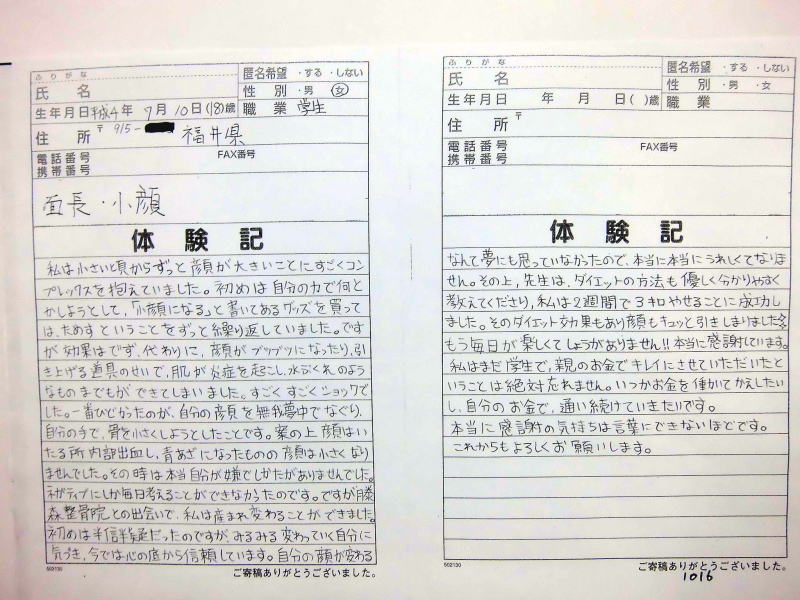 ふりがな
氏名
匿名希望 ・する ・しない
性別 ・男 ・女
生年月日 平成4年 9月 10日(18)歳
職業 学生
住所 〒915-
福井県
電話番号
携帯番号
FAX番号
面長・小顔
体験記
私は小さい頃からずっと顔が大きいことにすごくコン
プレックスを抱えていました。初めは自分の力で何と
かしようとして、「小顔になる」と書いてあるグッズを買って
は、ためすということをずっと繰り返していました。です
が効果はでず、代わりに、顔がブツブツになったり、引
き上げる道具のせいで、肌が炎症を起こし、水ぶくれのよう
なものまでもができてしまいました。すごくすごくショックで
した。一番ひどかったのが、自分の顔を無我夢中でなぐり、
自分の手で、骨を小さくしようとしたことです。案の上顔はい
たる所内部出血し、青あざになったものの顔は小さくなり
ませんでした。その時は本当自分が嫌でしかたがありませんでした。
ネガティブにしか毎日考えることができなかったのです。ですが藤
森整骨院との出会いで、私は産まれ変わることができました。
初めは半信半疑だったのですが、みるみる変わっていく自分に
気づき、今では心の底から信頼しています。自分の顔が変わる
502130
ご寄稿ありがとうございました。
ふりがな
氏名
匿名希望 ・する ・しない
性別 ・男 ・女
生年月日 年 月 日( )歳
職業
住所 〒
電話番号
携帯番号
FAX番号
体験記
なんて夢にも思っていなかったので、本当に本当にうれしくてなりま
せん。その上、先生は、ダイエットの方法も優しく分かりやすく
教えてくださり、私は2週間で3キロやせることに成功し
ました。そのダイエット効果もあり顔もキュッと引きしまりました
もう毎日が楽しくてしょうがありません!!本当に感謝しています。
私はまだ学生で、親のお金でキレイにさせていただいたと
いうことは絶対忘れません。いつかお金を働かてかえしたい
し、自分のお金で、通い続けていきたいです。
本当に感謝の気持ちは言葉にできないほどです。
これからもよろしくお願いします。
502130
ご寄稿ありがとうございました。
1016